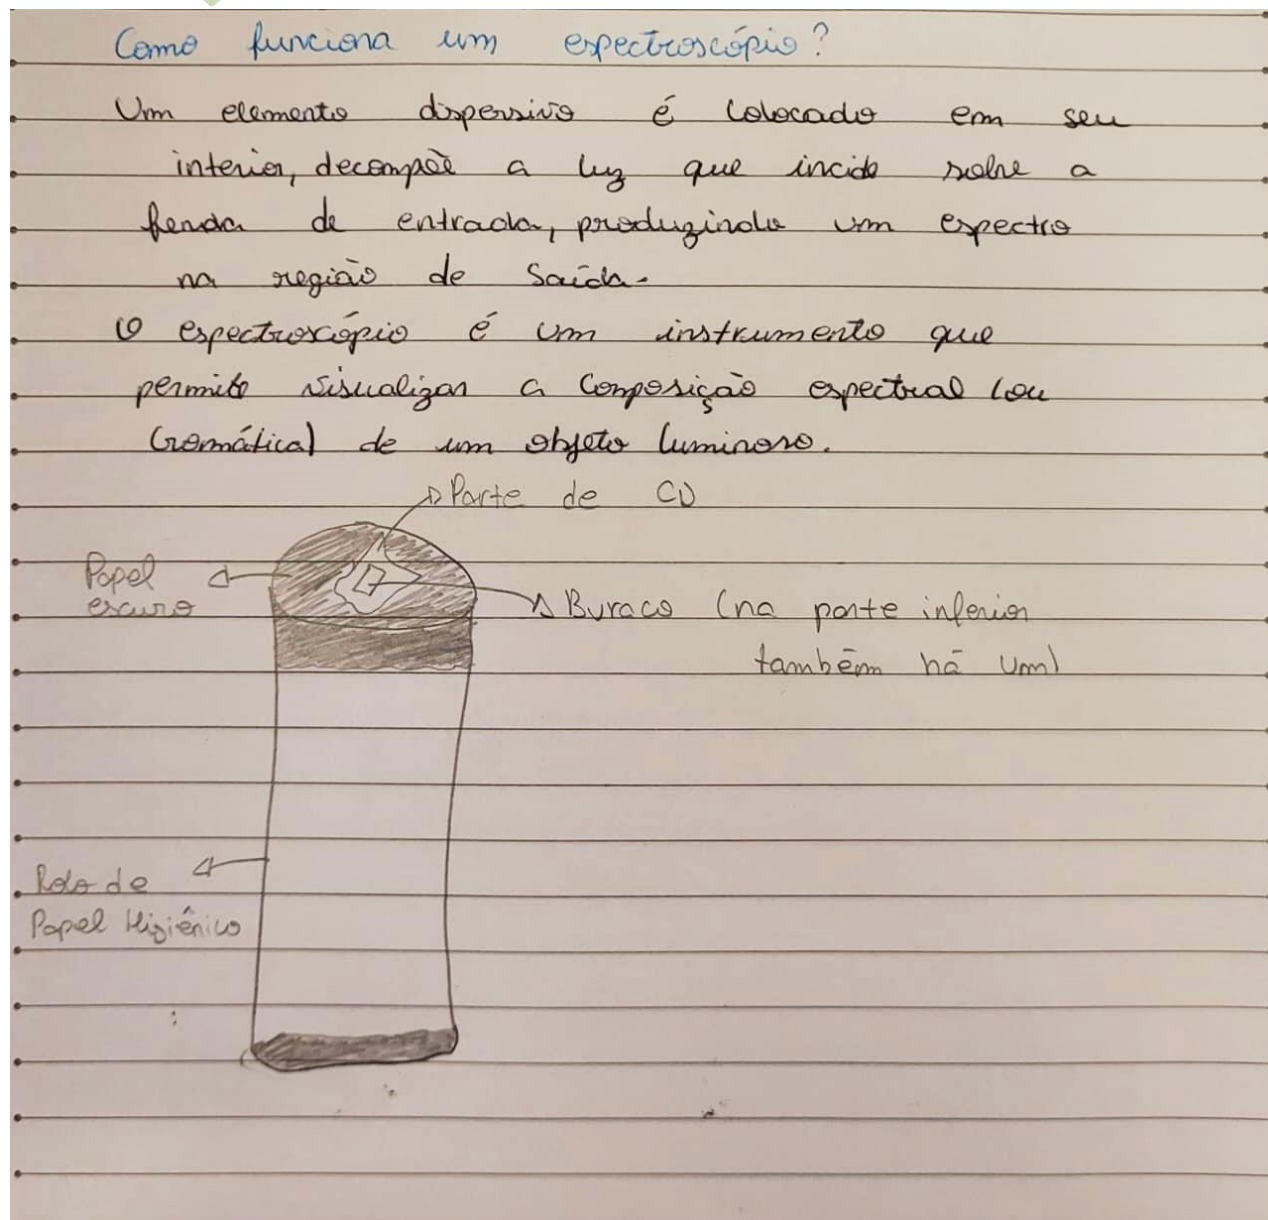 Como funciona um espectroscópio?
Um elemento dispersivo é colocado em seu
interior, decompõe a luz que incide sobre a
fenda de entrada, produzindo um espectro
na região de saída.
O espectroscópio é um instrumento que
permite visualizar a composição espectral (ou
cromática) de um objeto luminoso.
Parte de CD
Papel
escuro
Buraco (na parte inferior
também há um)
Rolo de
Papel Higiênico